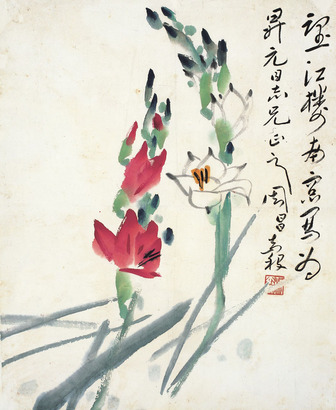 望江樓南窗寫為
昇元同志兄正之 周昌穀